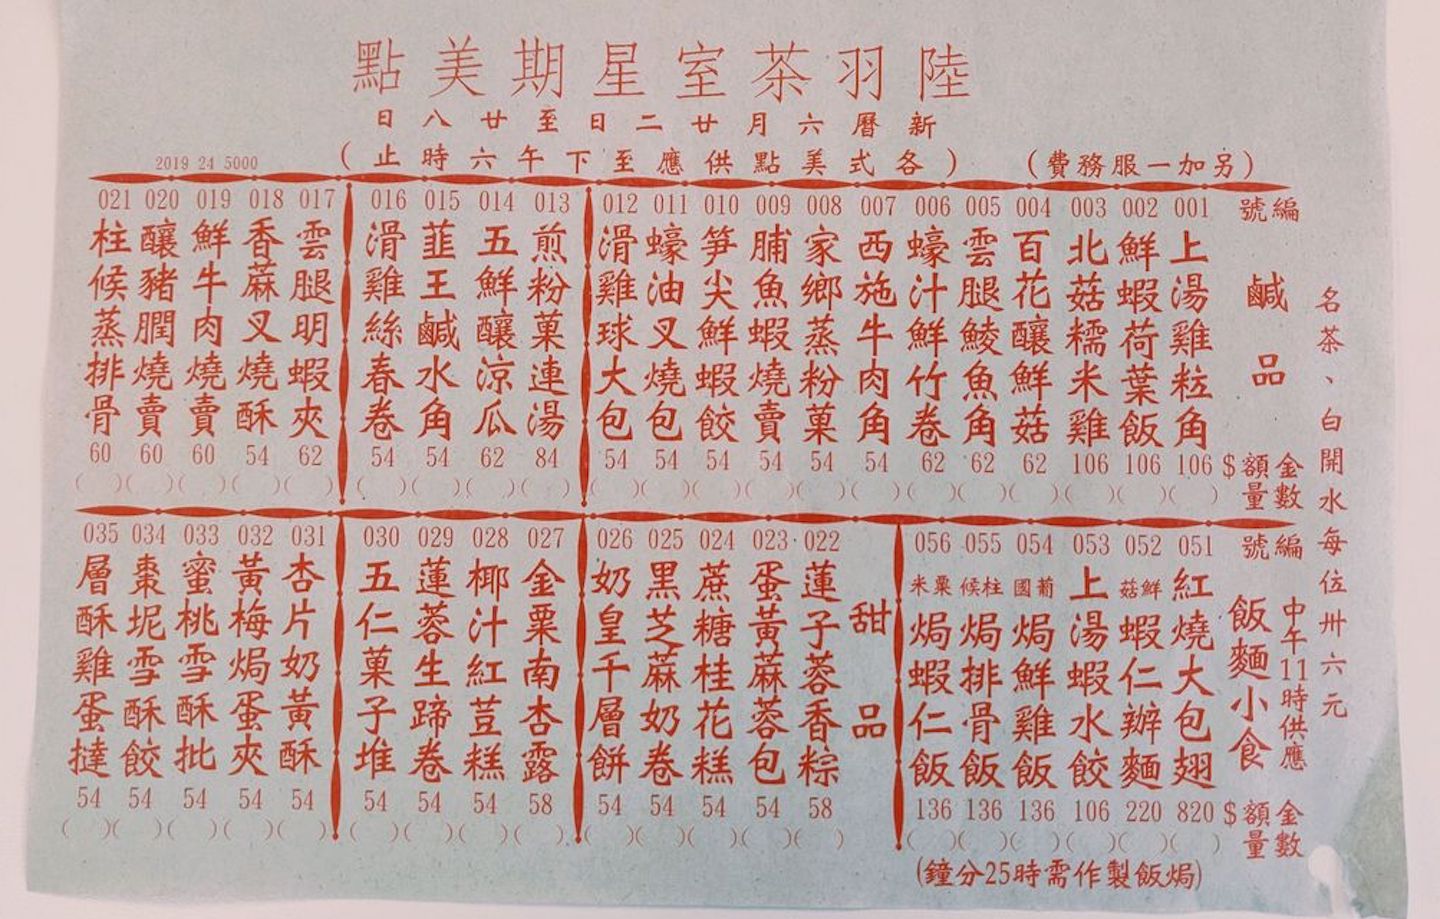 陸羽茶室星期美點
新曆六月廿二日至廿八日
(各式美點供應至下午六時止)
(另加一服務費)
2019 24 5000
名茶、白開水每位卅六元
編號
鹹品
金額$
數量
001 上湯雞粒角 106 ( )
002 鮮蝦荷葉飯 106 ( )
003 北菇糯米雞 106 ( )
004 百花釀鮮菇 62 ( )
005 雲腿鯪魚角 62 ( )
006 蠔汁鮮竹卷 62 ( )
007 西施牛肉角 54 ( )
008 家鄉蒸粉菓 54 ( )
009 脯魚蝦燒賣 54 ( )
010 笋尖鮮蝦餃 54 ( )
011 蠔油叉燒包 54 ( )
012 滑雞球大包 54 ( )
013 煎粉菓連湯 84 ( )
014 五鮮釀涼瓜 62 ( )
015 韮王鹹水角 54 ( )
016 滑雞絲春卷 54 ( )
017 雲腿明蝦夾 62 ( )
018 香蔴叉燒酥 54 ( )
019 鮮牛肉燒賣 60 ( )
020 釀豬膶燒賣 60 ( )
021 柱候蒸排骨 60 ( )
編號
中午11時供應
飯麵小食
金額$
數量
051 紅燒大包翅 820 ( )
052 鮮菇蝦仁辦麵 220 ( )
053 上湯蝦水餃 106 ( )
054 葡國焗鮮雞飯 136 ( )
055 柱候焗排骨飯 136 ( )
056 粟米焗蝦仁飯 136 ( )
(焗飯製作需時25分鐘)
甜品
022 蓮子蓉香粽 58 ( )
023 蛋黃蔴蓉包 54 ( )
024 蔗糖桂花糕 54 ( )
025 黑芝蔴奶卷 54 ( )
026 奶皇千層餅 54 ( )
027 金粟南杏露 58 ( )
028 椰汁紅荳糕 54 ( )
029 蓮蓉生蹄卷 54 ( )
030 五仁菓子堆 54 ( )
031 杏片奶黃酥 54 ( )
032 黃梅焗蛋夾 54 ( )
033 蜜桃雪酥批 54 ( )
034 棗坭雪酥餃 54 ( )
035 層酥雞蛋撻 54 ( )